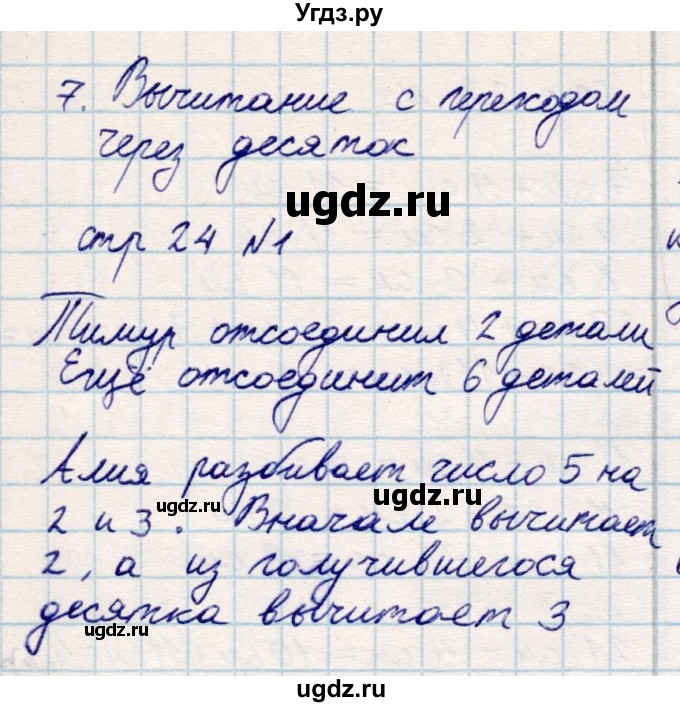 Угдз.ру
7. Вычитание с переходом
через десяток
ugdz.ru
стр 24 N1
Тимур отсоединил 2 детали
Ещё отсоединит 6 деталей
Алия разбивает число 5 на
ugdz.ru
ugdz.ru
2 и 3. Вначале вычитает
2, а из получившегося
десятка вычитает 3
ugdz.ru
ugdz.ru